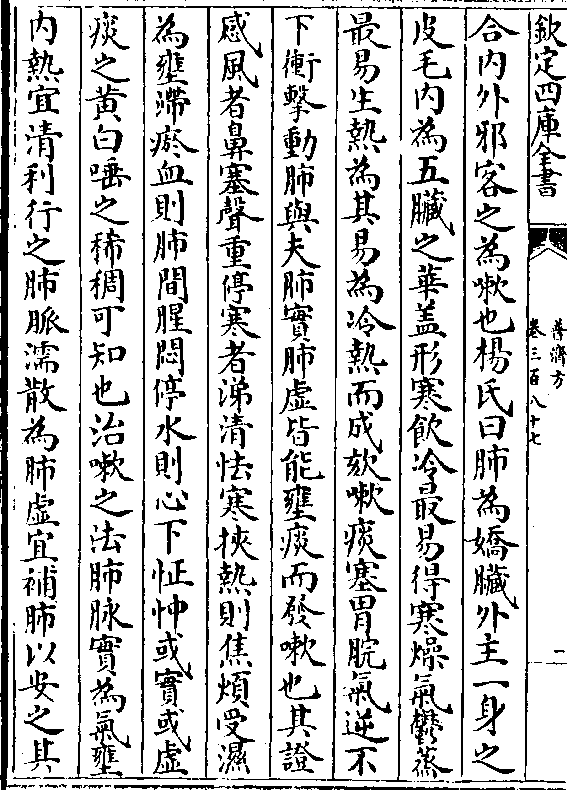 欽定四庫全書
普濟方
卷三百八十七
一
合内外邪客之為嗽也楊氏曰肺為嬌臟外主一身之
皮毛内為五臟之華盖形寒飲冷最易得寒燥氣鬱蒸
最易生熱為其易為冷熱而成欬嗽痰塞胃脘氣逆不
下衝擊動肺與夫肺實肺虛皆能壅痰而發嗽也其證
感風者鼻塞聲重停寒者涕清怯寒挾熱則焦煩受濕
為壅滯瘀血則肺間腥悶停水則心下怔忡或實或虛
痰之黄白唾之稀稠可知也治嗽之法肺脉實為氣壅
内熱宜清利行之肺脈濡散為肺虛宜補肺以安之其